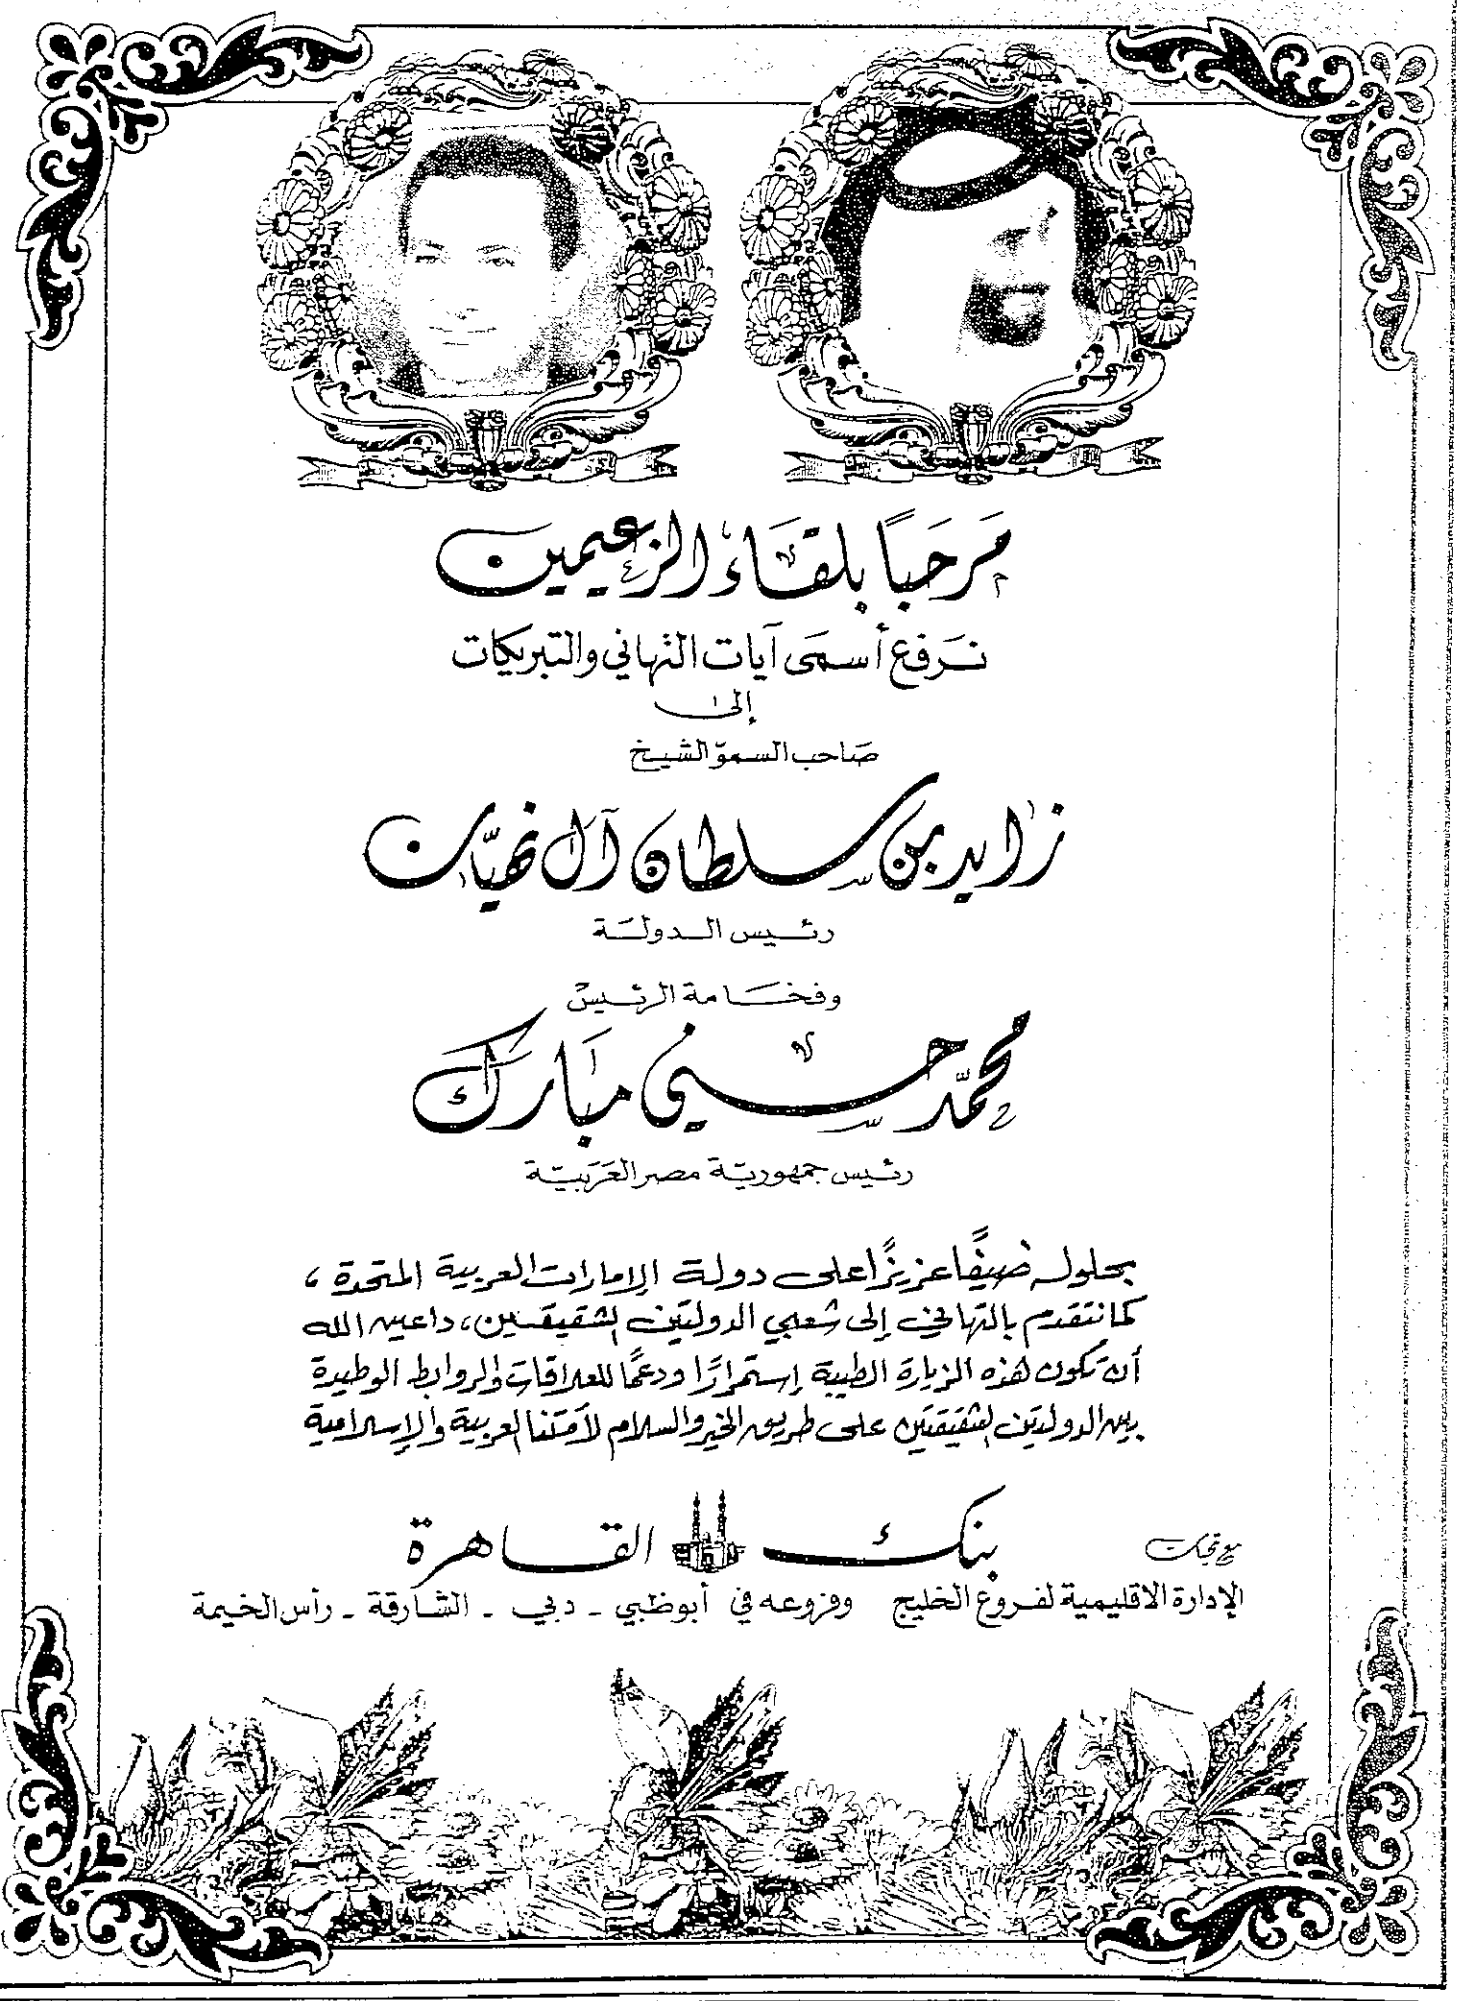 مَرحَبًا بلقَاء الزعيمين
نرفع أسمَى آيات التهاني والتبريكات
إلى
صَاحب السموّ الشيخ
زايد بن سلطان آل نهيّان
رئيس الدولة
وفخَامة الرئيس
محمّد حسني مبَارك
رئيس جمهوريّة مصر العَرَبيّة
بحلوله ضيفًا عزيزًا على دولة الإمارات العربية المتحدة ،
كما نتقدم بالتهاني إلى شعبي الدولتين الشقيقتين، داعين الله
أن تكون هذه الزيارة الطيبة إستمرارًا ودعمًا للعلاقات والروابط الوطيدة
بين الدولتين الشقيقتين على طريق الخير والسلام لأمتنا العربية والإسلامية
مع تحيات
بنك القاهرة
الإدارة الاقليمية لفروع الخليج وفروعه في أبوظبي - دبي - الشارقة - رأس الخيمة